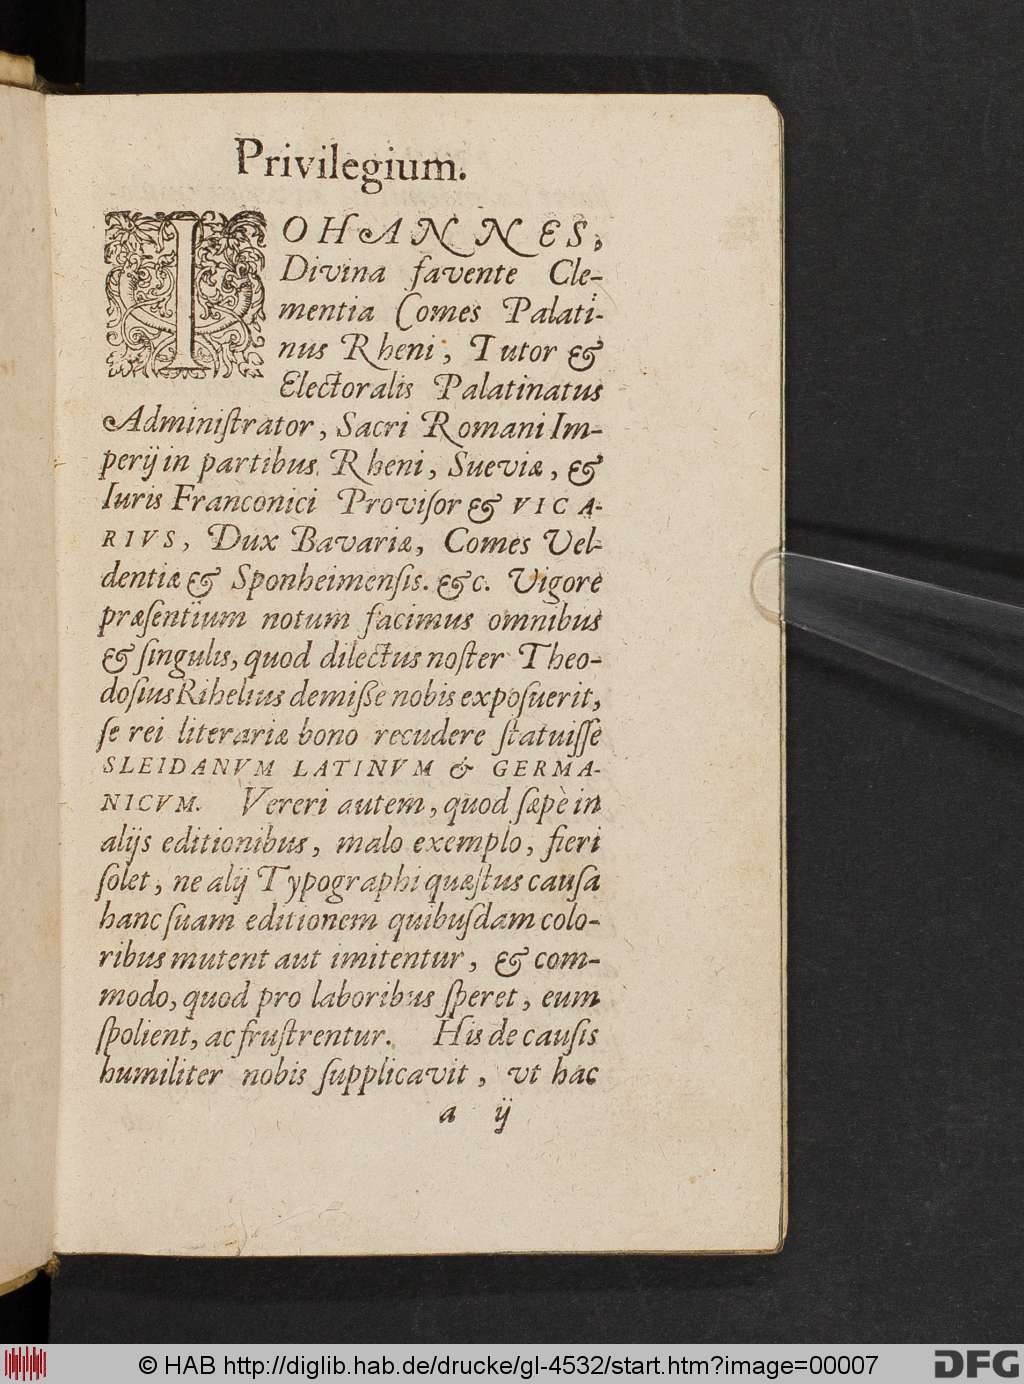 Privilegium.
IOHANNES,
Divina favente Cle-
mentia Comes Palati-
nus Rheni, Tutor &
Electoralis Palatinatus
Adminiſtrator, Sacri Romani Im-
perij in partibus Rheni, Sueviæ, &
Iuris Franconici Proviſor & VICA-
RIVS, Dux Bavariæ, Comes Vel-
dentiæ & Sponheimenſis. &c. Vigore
præſentium notum facimus omnibus
& ſingulis, quod dilectus noſter Theo-
doſius Rihelius demiſſe nobis expoſuerit,
ſe rei literariæ bono recudere ſtatuiſſe
SLEIDANVM LATINVM & GERMA-
NICVM. Vereri autem, quod ſæpè in
alijs editionibus, malo exemplo, fieri
ſolet, ne alij Typographi quæſtus cauſa
hanc ſuam editionem quibuſdam colo-
ribus mutent aut imitentur, & com-
modo, quod pro laboribus ſperet, eum
ſpolient, ac fruſtrentur. His de cauſis
humiliter nobis ſupplicavit, vt hac
a ij
© HAB http://diglib.hab.de/drucke/gl-4532/start.htm?image=00007
DFG